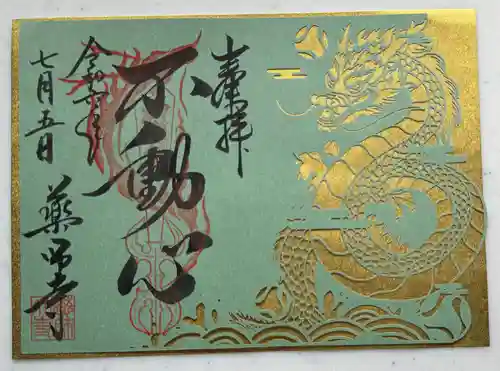 奉拝
不動心
令和六年
七月五日
薬师寺